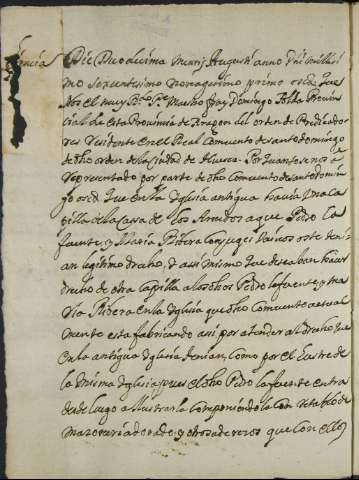 Die Duodecima mensis Augusti anno Dni millesi
mo sexcentesimo nonagesimo primo
el muy Rdo Pe Maestro fray Domingo Provin
cial de esta Provincia de Aragon del orden de Predicado
res residente en el Real Convento de santo domingo
de dho orden de la Ciudad de Huesca. Por quanto se nos a
representado por parte de dho Convento de santo domin
go que en la Yglesia antigua havia una Ca
pilla de la Casa de los a que Pedro la
fuente, y Maria Ribera Conjuges vecinos de este teni
an legitimo drecho, y assi mismo que deseaban haver
drecho de otra Capilla a los dhos Pedro lafuente, y ma
ria Ribera en la Yglesia que dho Convento actual
mente esta fabricando assi por atender al drecho que
en la antigua Yglesia tenian, como por el lustre de
la misma Yglesia pues el dho Pedro lafuente entra
desde luego a Illustrar la componiendola con retablo de
mazoneria dorado, y otros aderezos que con ello